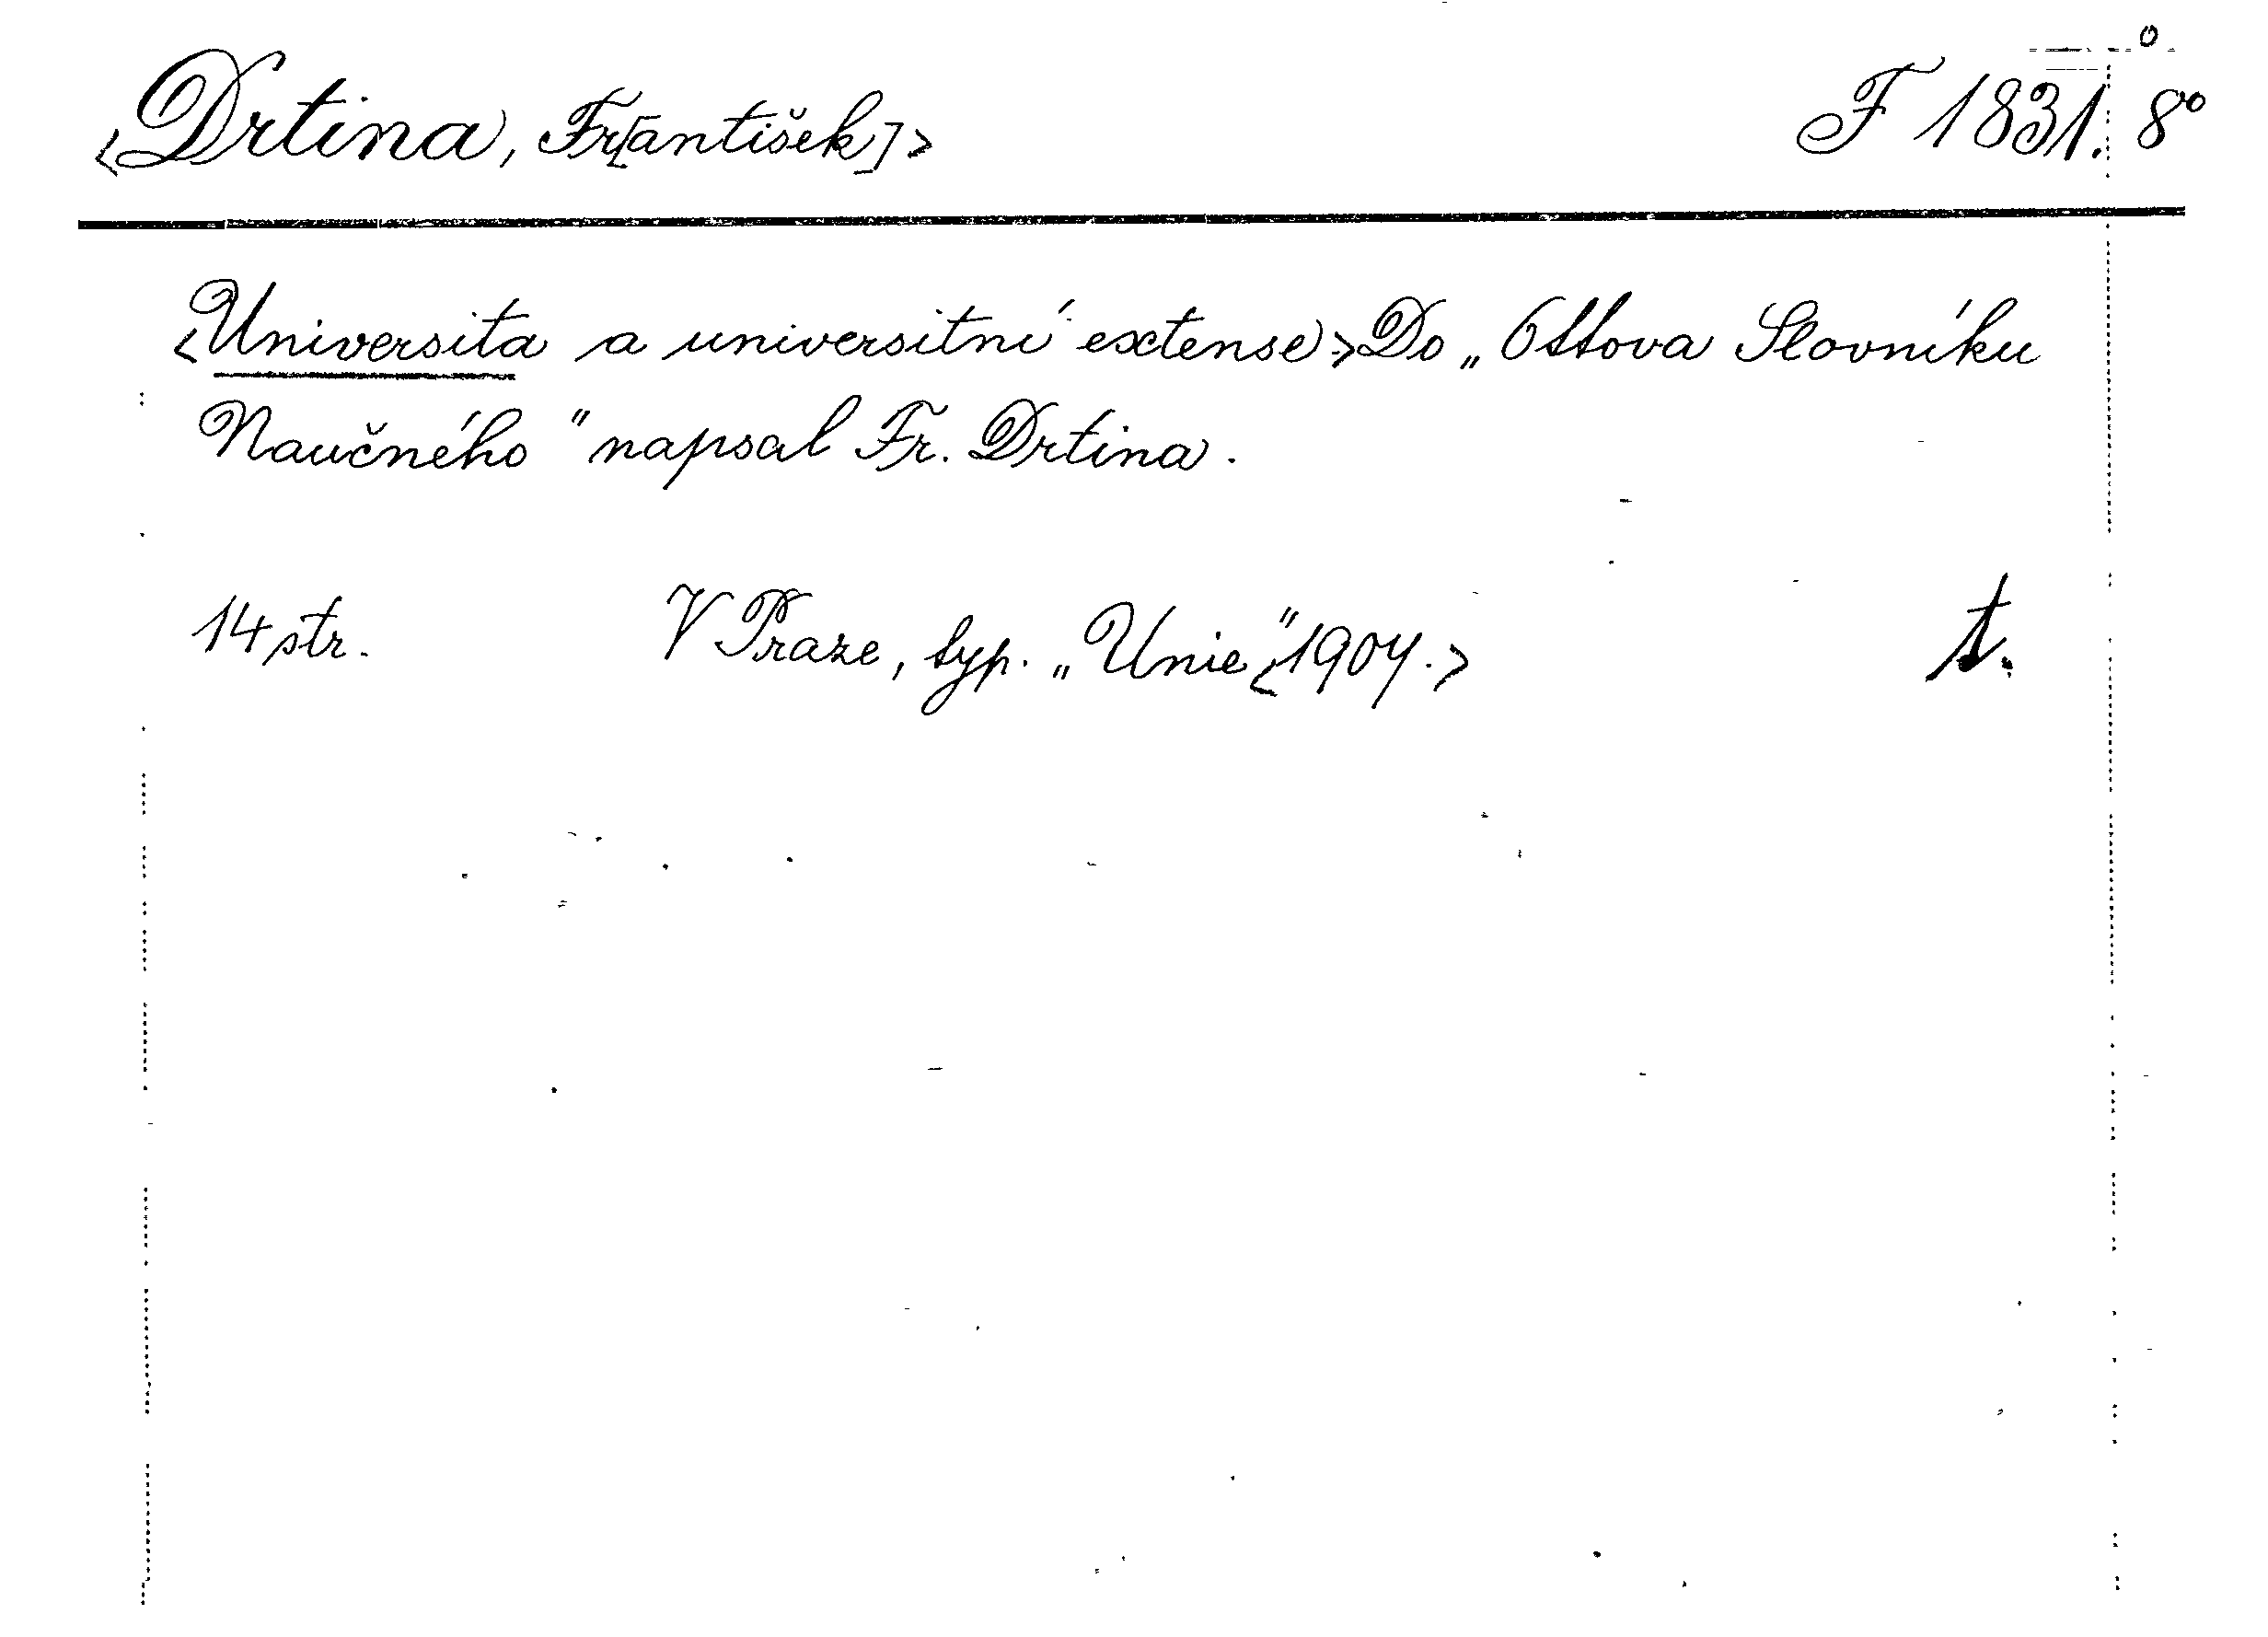 <Drtina, Fr[antišek]> F 1831. 8°
<Universita a universitní extense.> Do „Ottova Slovníku
Naučného" napsal Fr. Drtina.
14 str. V Praze, typ. „Unie" <1907.> t.